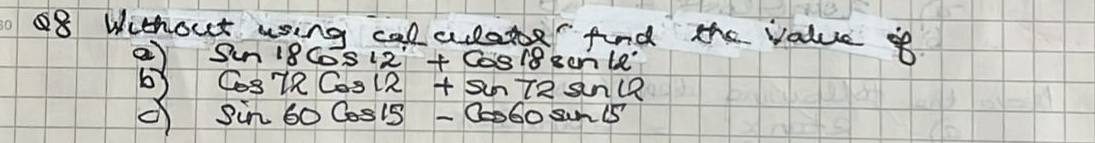 Q8 Without using calculator find the value of
a) Sin 18 Cos 12 + Cos 18 sin 12
b) Cos 72 Cos 12 + sin 72 sin 12
c) Sin 60 Cos 15 - Cos 60 sin 15